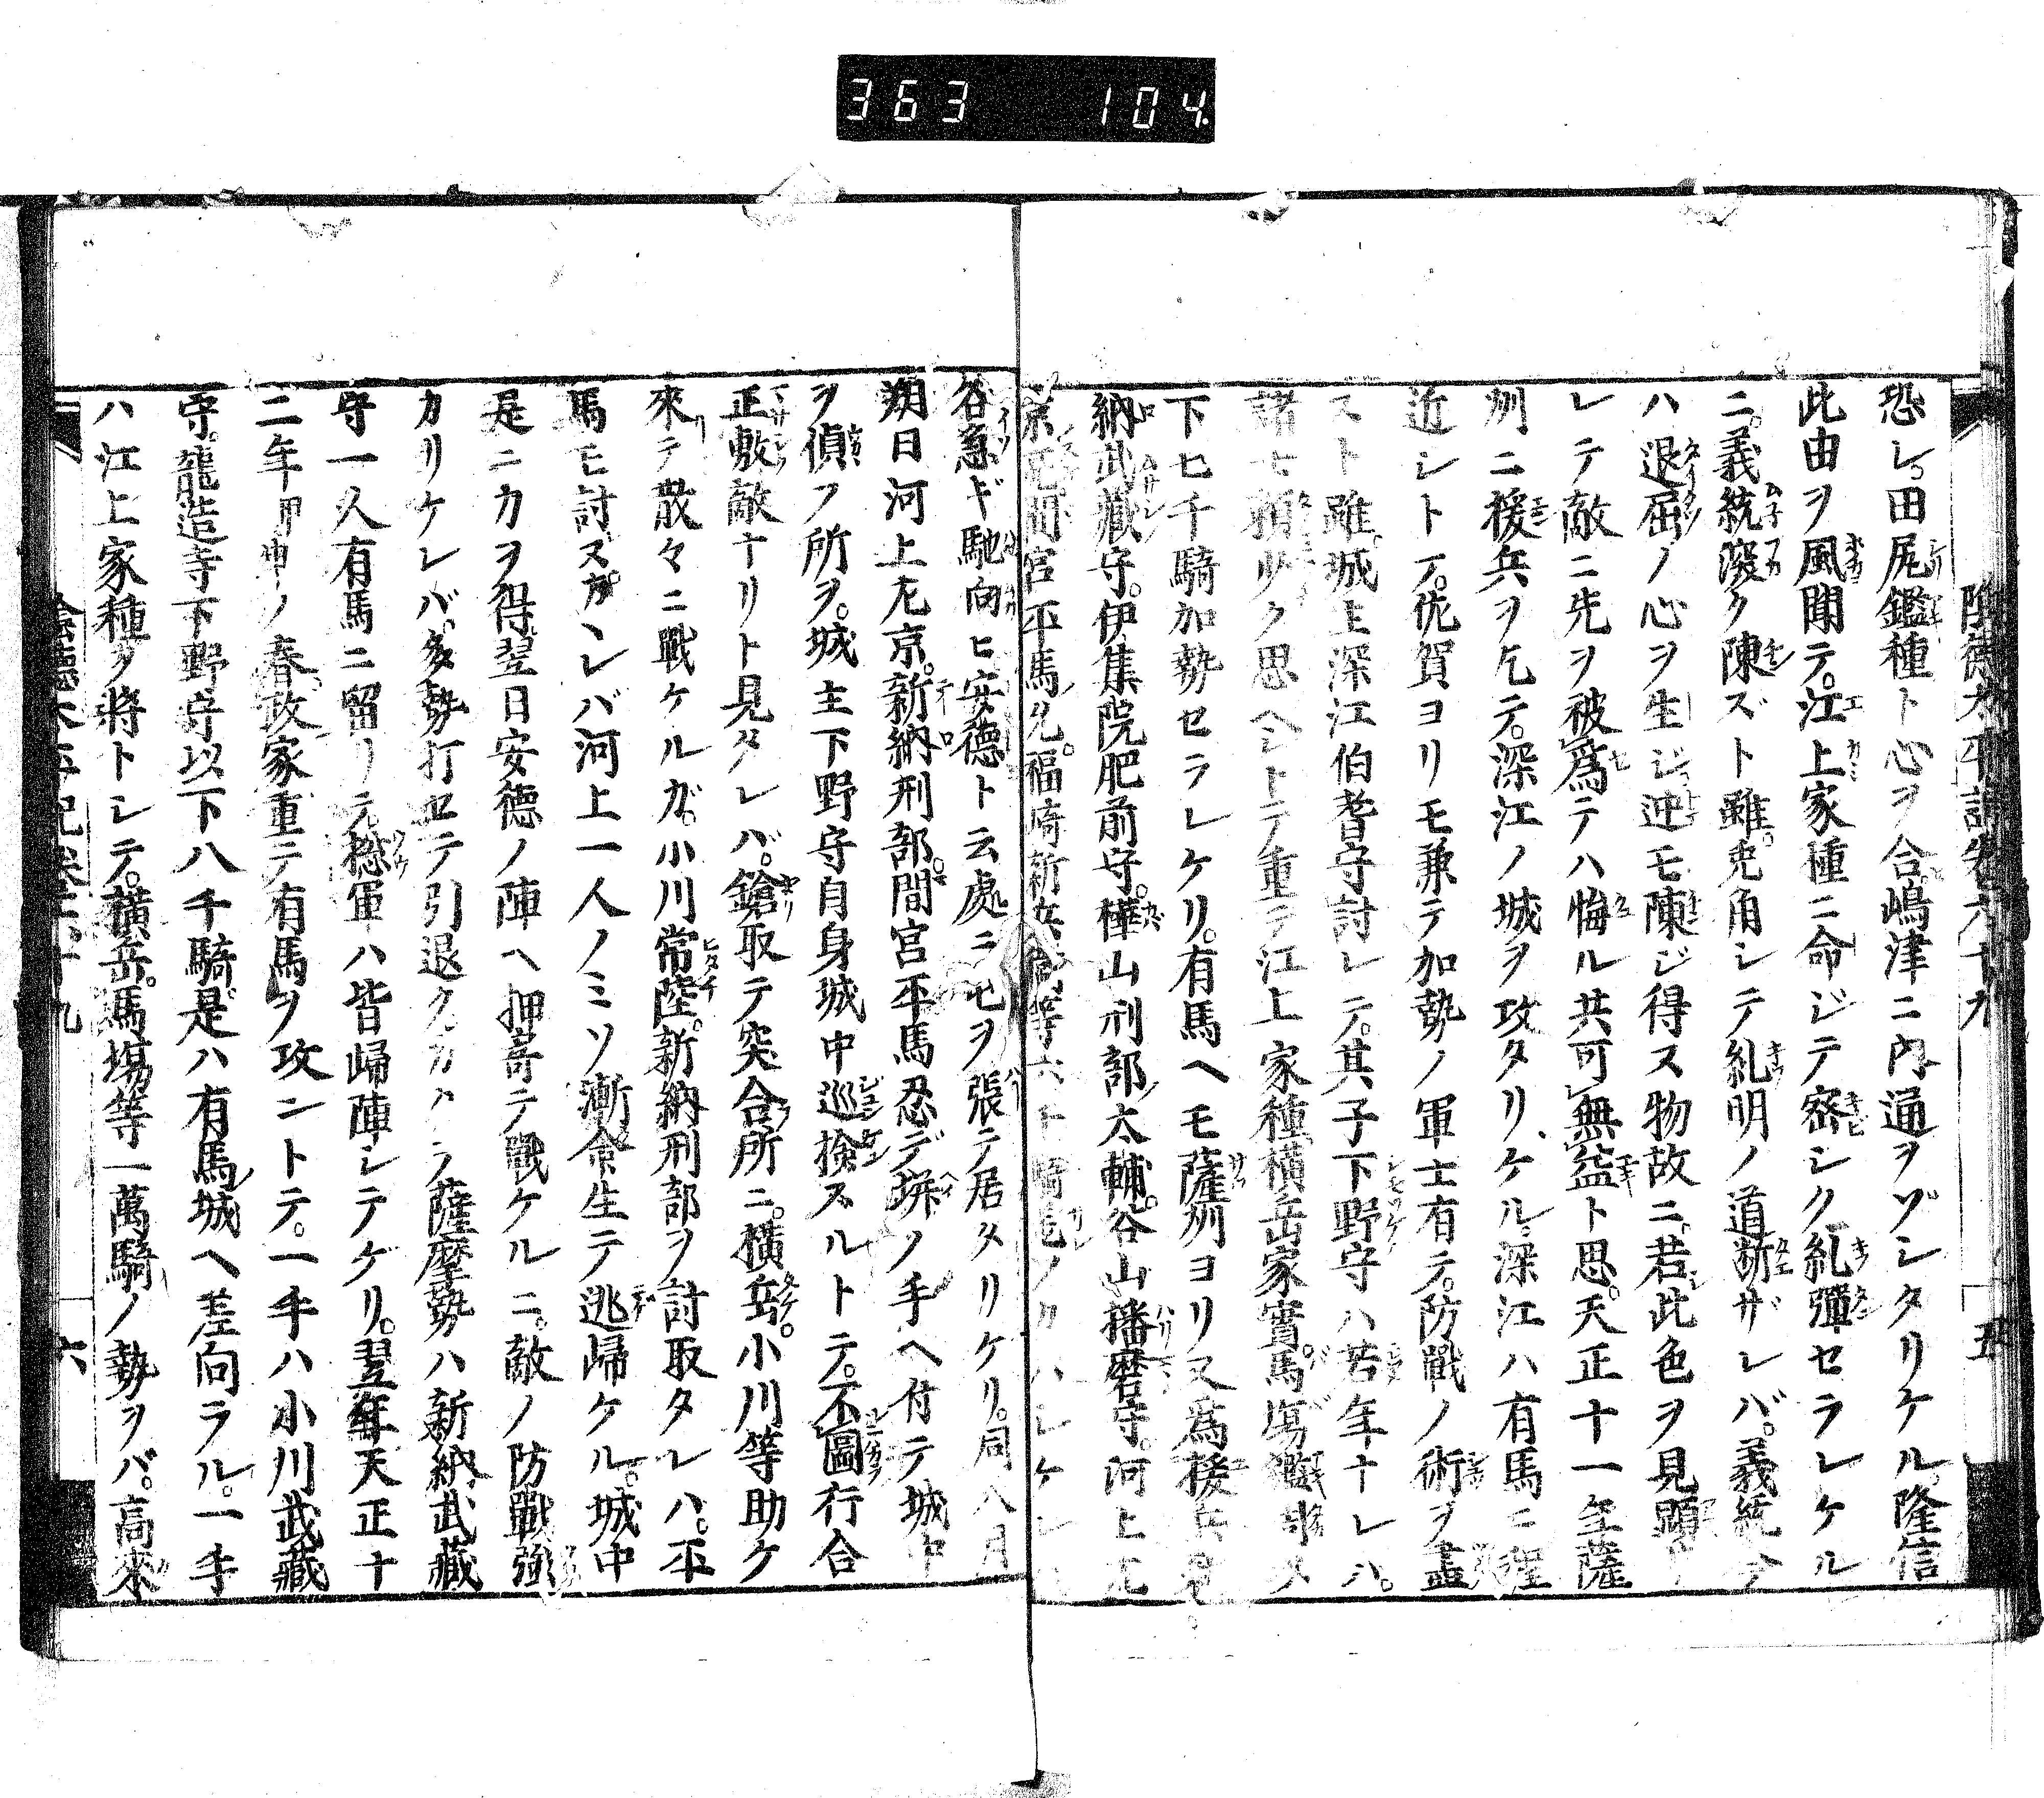 363 104
陰德太平記卷六十九 五
恐レ。田尻鑑種ト心ヲ合。嶋津ニ内通ヲゾシタリケル。隆信
此由ヲ風聞テ。江上家種ニ命ジテ密シク糺彈セラレケル
ニ。義統深ク陳ズト雖。兎角シテ糺明ノ道斷ザレバ。義統今
ハ退屈ノ心ヲ生ジ迚モ陳ジ得ス物故ニ。若此色ヲ見顯
レテ敵ニ先ヲ被爲テハ悔ル共可無益ト思。天正十一年薩
州ニ援兵ヲ乞テ。深江ノ城ヲ攻タリケル。深江ハ有馬ニ程
近シトテ。佐賀ヨリモ兼テ加勢ノ軍士有テ。防戰ノ術ヲ盡
スト雖。城主深江伯耆守討レテ。其子下野守ハ若年ナレハ。
諸士頼少ク思ヘシトテ重テ江上家種横岳家實。馬塲鑑
下七千騎加勢セラレケリ。有馬ヘモ薩州ヨリ又爲援兵
納武藏守。伊集院肥前守。樺山刑部太輔。谷山播磨守。河上左
京間宮平馬允。福崎新兵衛等六千騎
谷急ギ馳向ヒ安德ト云處ニ七ヲ張テ居タリケリ。同八月
朔日河上左京。新納刑部。間宮平馬忍デ塀ノ手ヘ付テ城中
ヲ偵フ所ヲ。城主下野守自身城中巡撿ズルトテ。不圖行合
正敷敵ナリト見タレバ。鎗取テ突合所ニ。横岳。小川等助ケ
來テ散々ニ戰ケルガ。小川常陸。新納刑部ヲ討取タレハ。平
馬モ討ヌ。カヽレバ河上一人ノミソ漸命生テ逃歸ケル。城中
是ニカヲ得翌日安德ノ陣ヘ押寄テ戰ケルニ。敵ノ防戰強
カリケレバ。多勢打セテ引退ク。カクテ薩摩勢ハ新納武藏
守一人有馬ニ留リテ。摠軍ハ皆歸陣シテケリ。翌年天正十
二年甲申ノ春政家重テ有馬ヲ攻ントテ。一手ハ小川武藏
守。龍造寺下野守以下八千騎。是ハ有馬城ヘ差向ラル。一手
ハ江上家種ヲ將トレテ。横岳。馬塲等一萬騎ノ勢ヲバ。高來
陰德太平記卷六十九 六